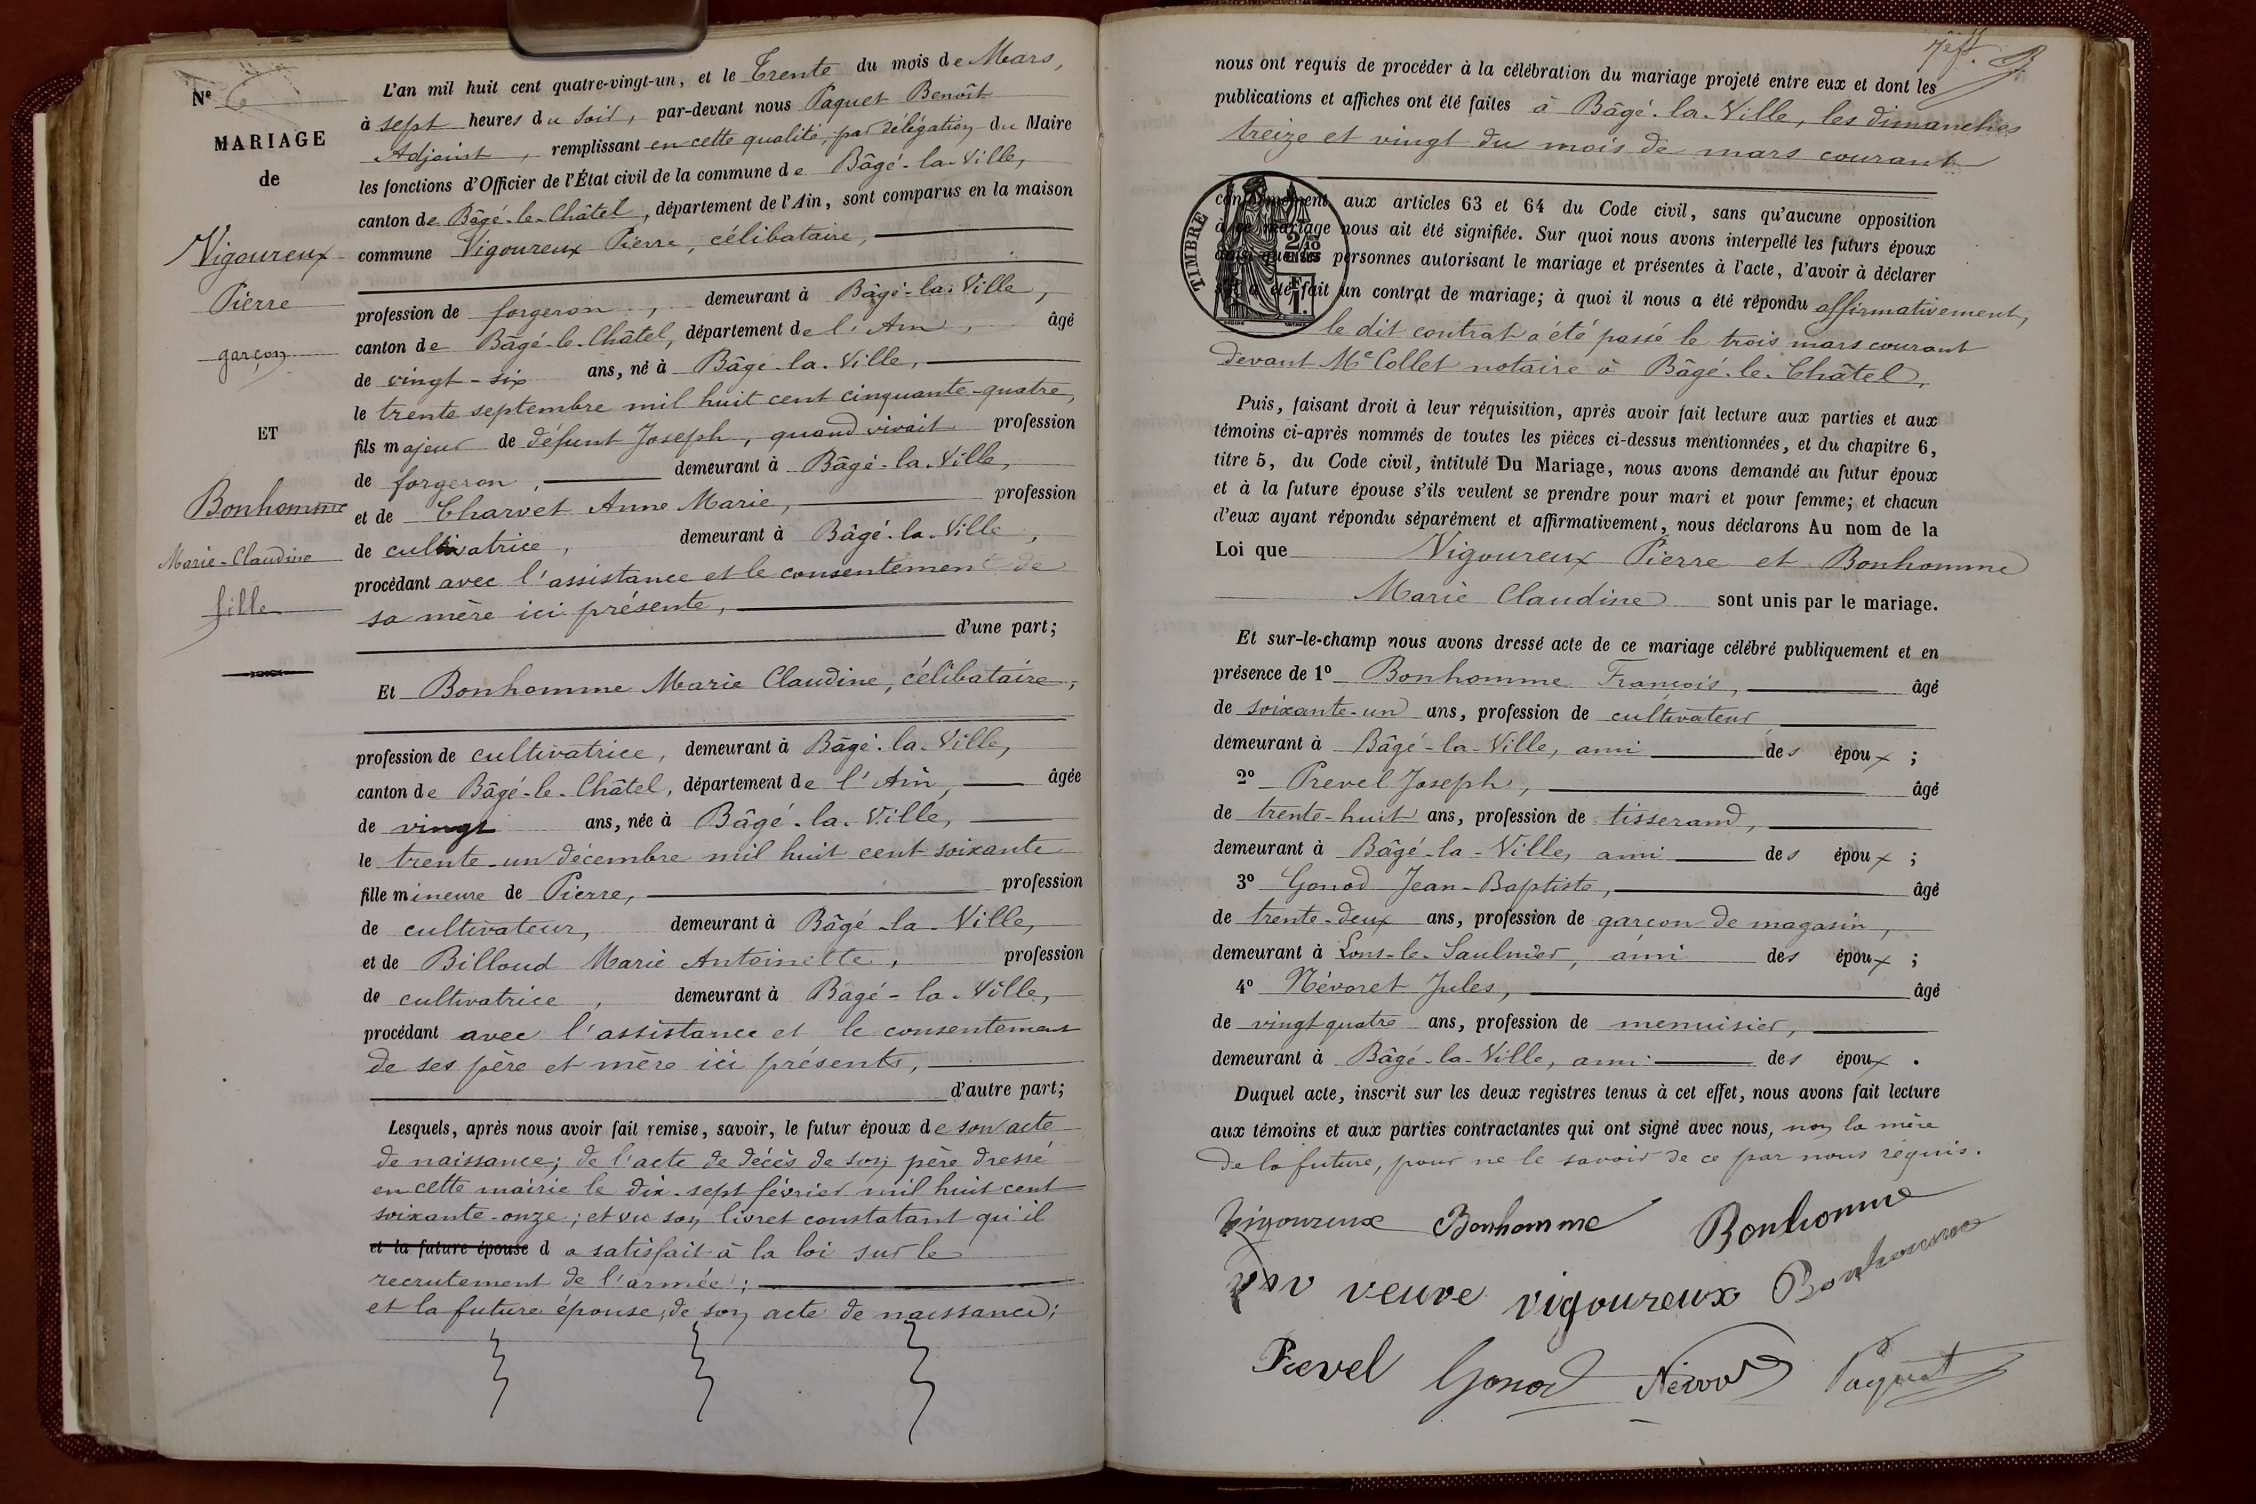 Nº 6
MARIAGE
de
Vigoureux
Pierre
garçon
ET
Bonhomme
Marie-Claudine
fille
L'an mil huit cent quatre-vingt-un, et le Trente du mois de Mars,
à sept heures du soir, par-devant nous Paquet Benoît
Adjoint, remplissant en cette qualité, par délégation du Maire
les fonctions d'Officier de l'État civil de la commune de Bâgé-la-Ville,
canton de Bâgé-le-Châtel, département de l'Ain, sont comparus en la maison
commune Vigoureux Pierre, célibataire,
profession de forgeron, demeurant à Bâgé-la-Ville,
canton de Bâgé-le-Châtel, département de l'Ain, âgé
de vingt-six ans, né à Bâgé-la-Ville,
le trente septembre mil huit cent cinquante-quatre,
fils majeur de défunt Joseph, quand vivait profession
de forgeron, demeurant à Bâgé-la-Ville,
et de Charvet Anne Marie, profession
de cultivatrice, demeurant à Bâgé-la-Ville,
procédant avec l'assistance et le consentement de
sa mère ici présente,
d'une part;
Et Bonhomme Marie Claudine, célibataire,
profession de cultivatrice, demeurant à Bâgé-la-Ville,
canton de Bâgé-le-Châtel, département de l'Ain, âgée
de vingt ans, née à Bâgé-la-Ville,
le trente-un décembre mil huit cent soixante
fille mineure de Pierre, profession
de cultivateur, demeurant à Bâgé-la-Ville,
et de Billoud Marie Antoinette, profession
de cultivatrice, demeurant à Bâgé-la-Ville,
procédant avec l'assistance et le consentement
de ses père et mère ici présents,
d'autre part;
Lesquels, après nous avoir fait remise, savoir, le futur époux de son acte
de naissance; de l'acte de décès de son père dressé
en cette mairie le dix-sept février mil huit cent
soixante-onze; et vu son livret constatant qu'il
et la future épouse d a satisfait à la loi sur le
recrutement de l'armée;
et la future épouse, de son acte de naissance;
nous ont requis de procéder à la célébration du mariage projeté entre eux et dont les
publications et affiches ont été faites à Bâgé-la-Ville, les dimanches
treize et vingt du mois de mars courant
TIMBRE
conformément aux articles 63 et 64 du Code civil, sans qu'aucune opposition
à ce mariage nous ait été signifiée. Sur quoi nous avons interpellé les futurs époux
ainsi que les personnes autorisant le mariage et présentes à l'acte, d'avoir à déclarer
s'il a été fait un contrat de mariage; à quoi il nous a été répondu affirmativement,
le dit contrat a été passé le trois mars courant
devant Me Collet notaire à Bâgé-le-Châtel.
Puis, faisant droit à leur réquisition, après avoir fait lecture aux parties et aux
témoins ci-après nommés de toutes les pièces ci-dessus mentionnées, et du chapitre 6,
titre 5, du Code civil, intitulé Du Mariage, nous avons demandé au futur époux
et à la future épouse s'ils veulent se prendre pour mari et pour femme; et chacun
d'eux ayant répondu séparément et affirmativement, nous déclarons Au nom de la
Loi que Vigoureux Pierre et Bonhomme
Marie Claudine sont unis par le mariage.
Et sur-le-champ nous avons dressé acte de ce mariage célébré publiquement et en
présence de 1º Bonhomme François, âgé
de soixante-un ans, profession de cultivateur
demeurant à Bâgé-la-Ville, ami des époux;
2º Prevel Joseph, âgé
de trente-huit ans, profession de tisserand,
demeurant à Bâgé-la-Ville, ami des époux;
3º Gonod Jean-Baptiste, âgé
de trente-deux ans, profession de garçon de magasin,
demeurant à Lons-le-Saulnier, ami des époux;
4º Névoret Jules, âgé
de vingt quatre ans, profession de menuisier,
demeurant à Bâgé-la-Ville, ami des époux.
Duquel acte, inscrit sur les deux registres tenus à cet effet, nous avons fait lecture
aux témoins et aux parties contractantes qui ont signé avec nous, non la mère
de la future, pour ne le savoir de ce par nous requis.
Vigoureux Bonhomme Bonhomme
veuve vigoureux Bonhomme
Prevel Gonod Paquet